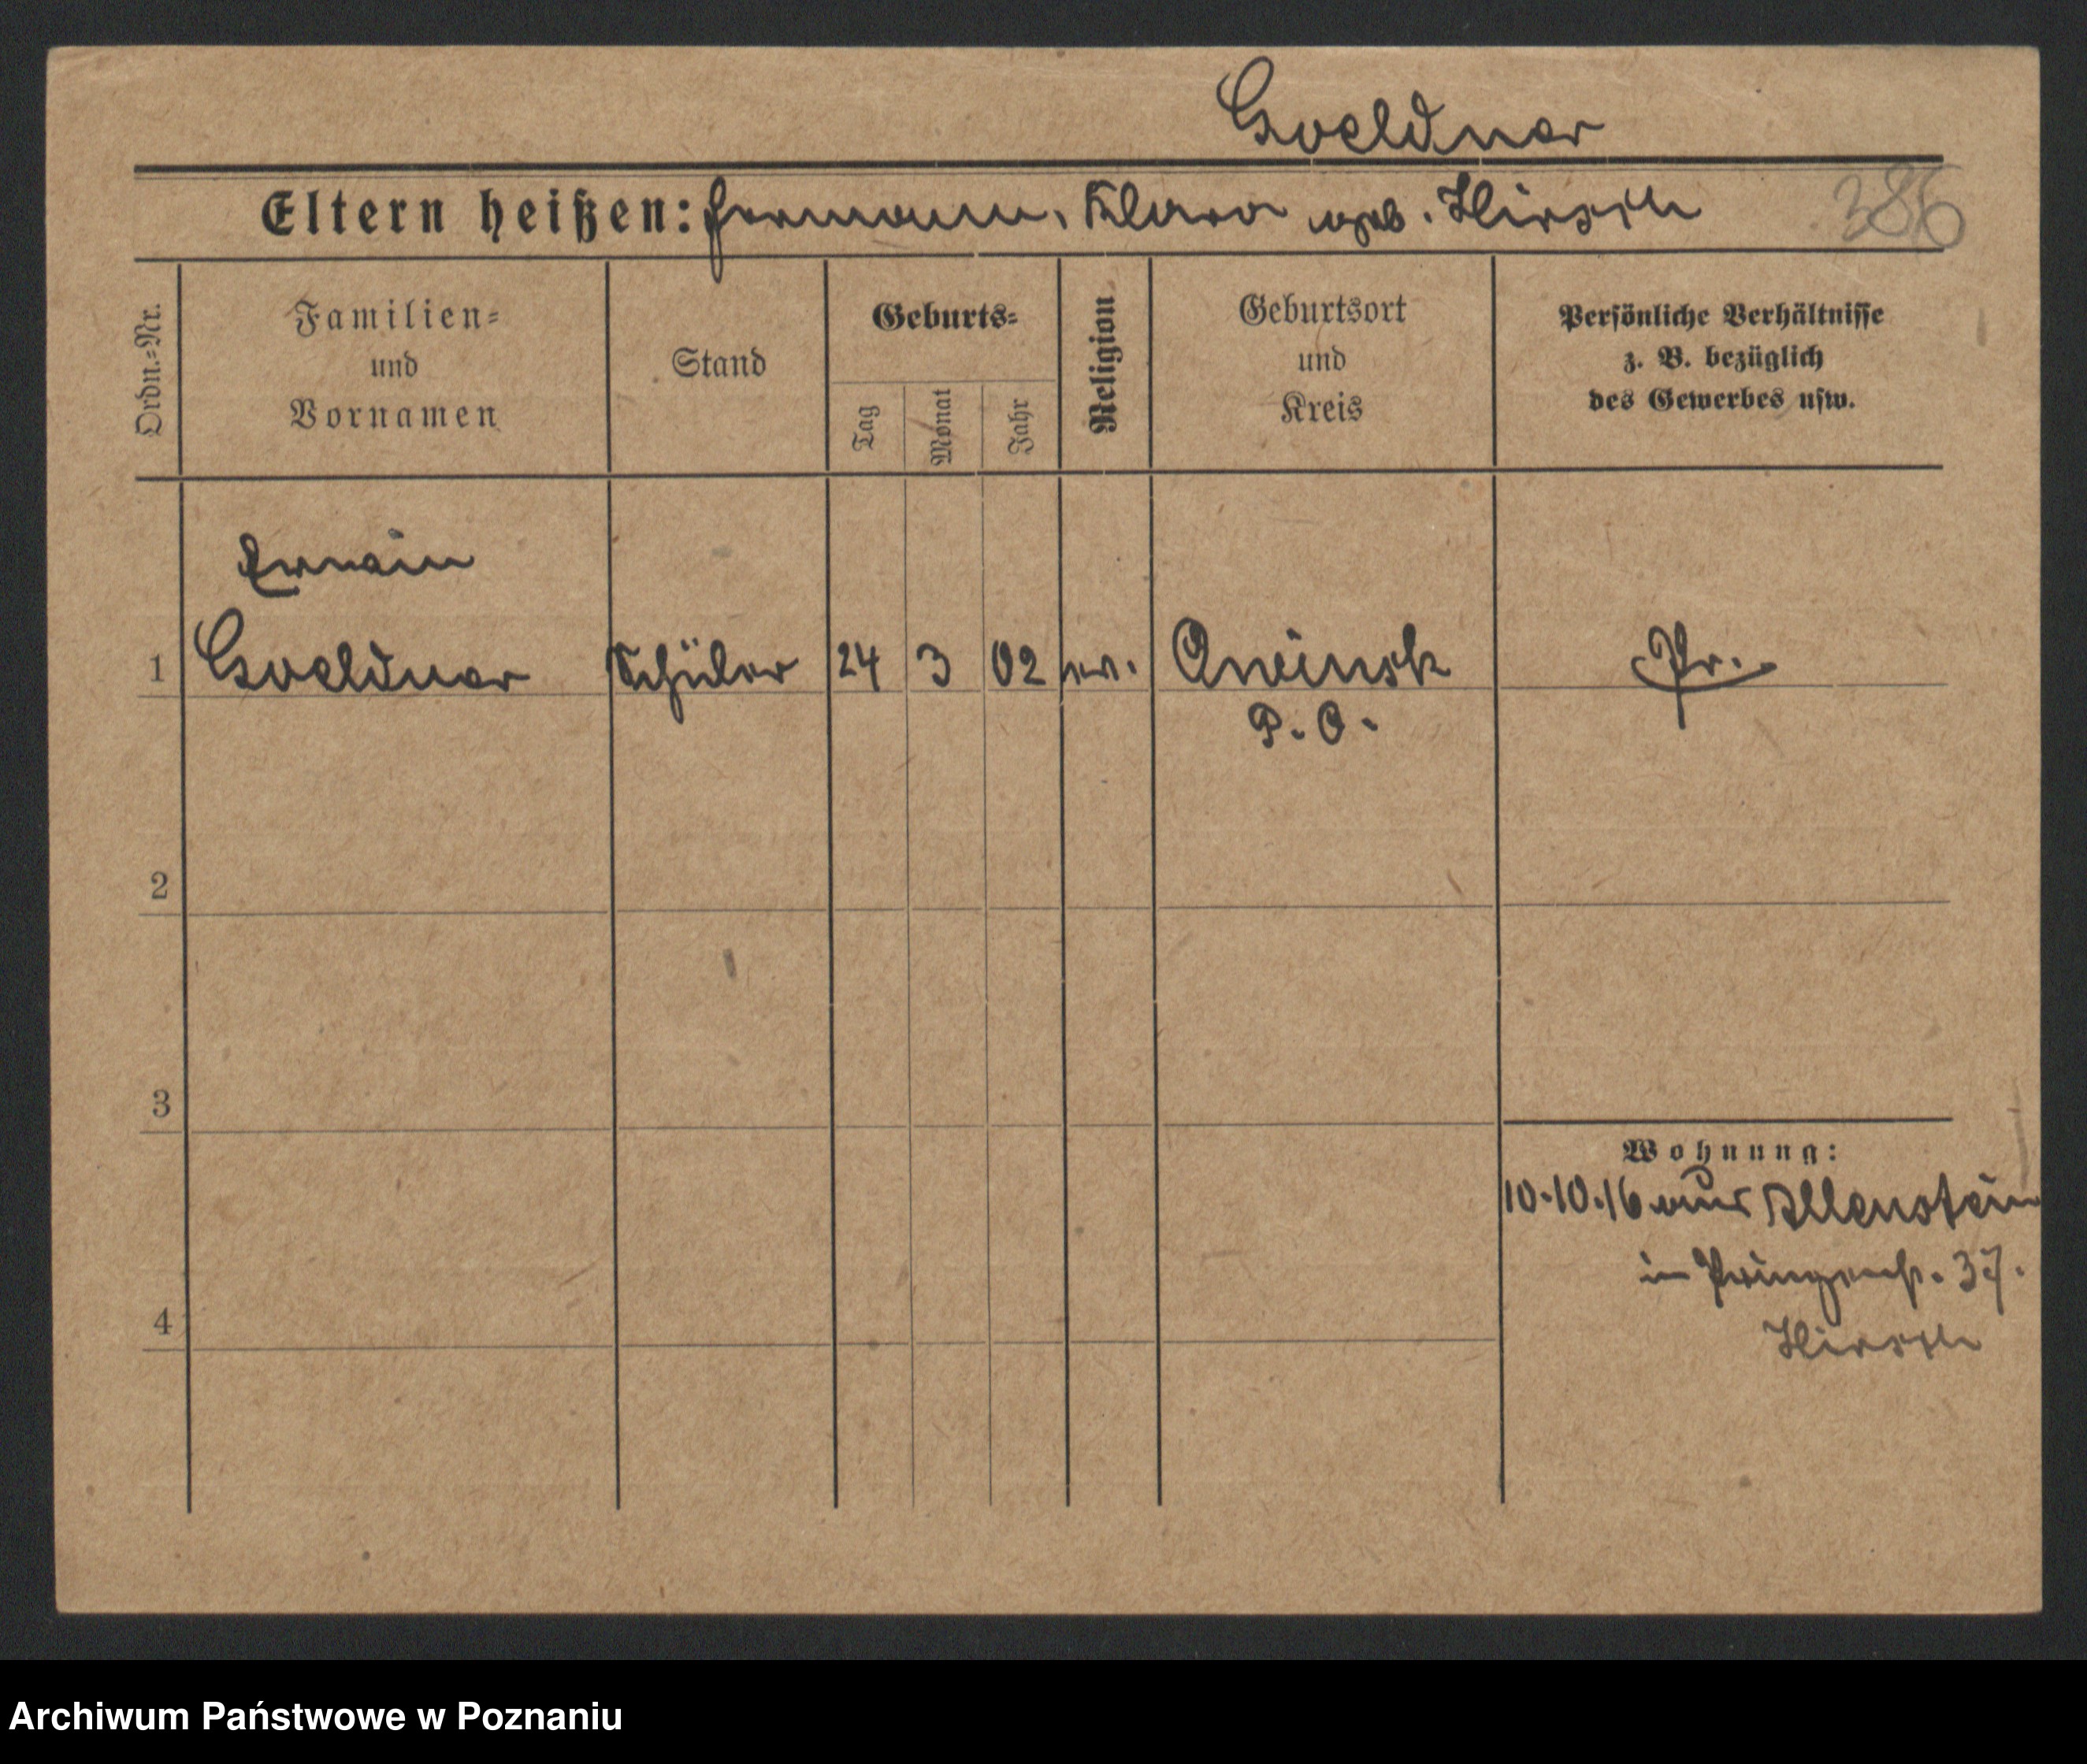 Goeldner
Eltern heißen: Hermann, Klara geb. Hirsch
386
Ordn.-Nr.
Familien-
und
Vornamen
Stand
Geburts-
Tag
Monat
Jahr
Religion
Geburtsort
und
Kreis
Persönliche Verhältnisse
z. B. bezüglich
des Gewerbes usw.
1
Goeldner Schüler 24 3 02 ev. Gneinsk Pr.
P. O.
2
3
4
Wohnung:
10.10.16 aus Allenstein
in Prinzenst. 37.
Hirsch
Archiwum Państwowe w Poznaniu